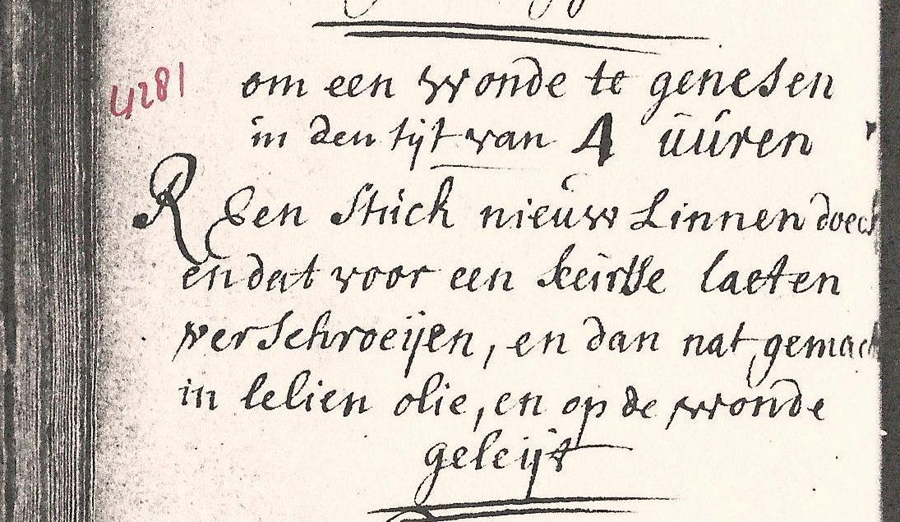 4281
om een wonde te genesen
in den tijt van 4 üüren
R Een Stück nieuw Linnen doeck
en dat voor een keirsse laeten
verschroeijen, en dan nat gemack
in lelien olie, en op de wonde
geleijt